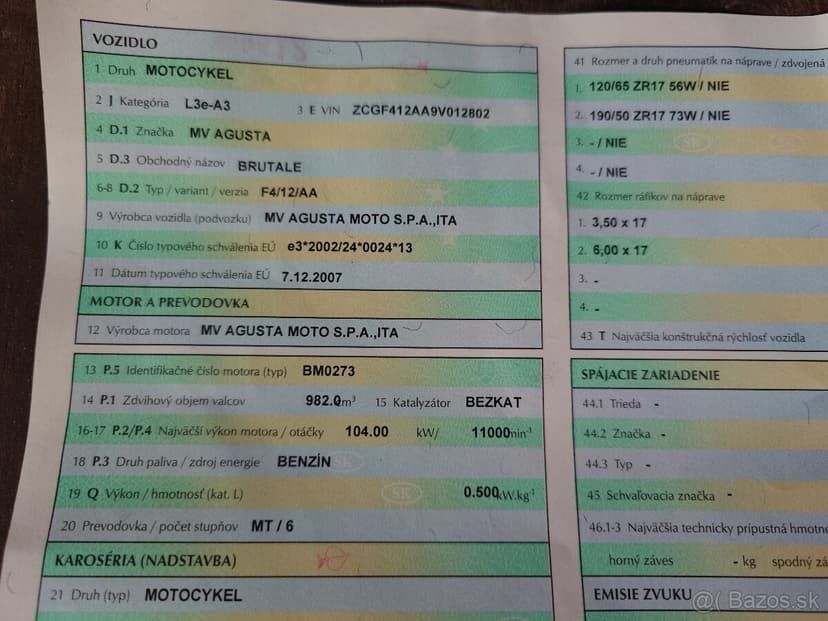 VOZIDLO
1 Druh MOTOCYKEL
2 J Kategória L3e-A3 3 E VIN ZCGF412AA9V012802
4 D.1 Značka MV AGUSTA
5 D.3 Obchodný názov BRUTALE
6-8 D.2 Typ / variant / verzia F4/12/AA
9 Výrobca vozidla (podvozku) MV AGUSTA MOTO S.P.A.,ITA
10 K Číslo typového schválenia EÚ e3*2002/24*0024*13
11 Dátum typového schválenia EÚ 7.12.2007
MOTOR A PREVODOVKA
12 Výrobca motora MV AGUSTA MOTO S.P.A.,ITA
13 P.5 Identifikačné číslo motora (typ) BM0273
14 P.1 Zdvihový objem valcov 982.0 m³ 15 Katalyzátor BEZKAT
16-17 P.2/P.4 Najväčší výkon motora / otáčky 104.00 kW/ 11000 min⁻¹
18 P.3 Druh paliva / zdroj energie BENZÍN
19 Q Výkon / hmotnosť (kat. L) SK 0.500 kW.kg⁻¹
20 Prevodovka / počet stupňov MT / 6
KAROSÉRIA (NADSTAVBA)
21 Druh (typ) MOTOCYKEL
41 Rozmer a druh pneumatík na náprave / zdvojená
1. 120/65 ZR17 56W / NIE
2. 190/50 ZR17 73W / NIE
3. - / NIE
4. - / NIE
42 Rozmer ráfikov na náprave
1. 3,50 x 17
2. 6,00 x 17
3. -
4. -
43 T Najväčšia konštrukčná rýchlosť vozidla
SPÁJACIE ZARIADENIE
44.1 Trieda -
44.2 Značka -
44.3 Typ -
45 Schvaľovacia značka -
46.1-3 Najväčšia technicky prípustná
horný záves - kg spodný
EMISIE ZVUKU
Bazos.sk